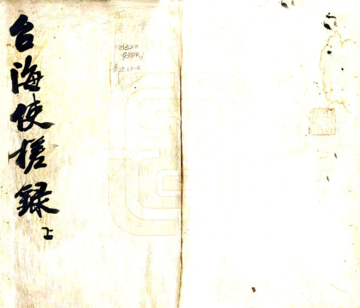 台海使槎録
上